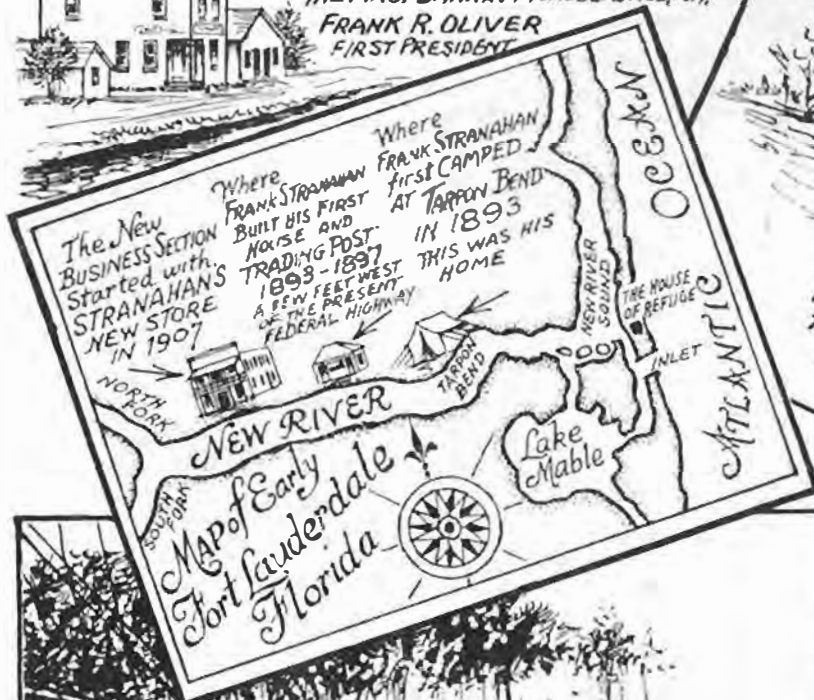 FRANK R. OLIVER
FIRST PRESIDENT
The New
BUSINESS SECTION
started with
STRANAHAN'S
NEW STORE
IN 1907
Where
FRANK STRANAHAN
BUILT HIS FIRST
HOUSE AND
TRADING POST.
1893-1897
A FEW FEET WEST
OF THE PRESENT
FEDERAL HIGHWAY
Where
FRANK STRANAHAN
first CAMPED
AT TARPON BEND
IN 1893
THIS WAS HIS
HOME
OCEAN
ATLANTIC
NEW RIVER
SOUND
THE HOUSE
OF REFUGE
INLET
TARPON
BEND
NORTH
FORK
NEW RIVER
SOUTH
FORK
Lake
Mable
MAP of Early
Fort Lauderdale
Florida